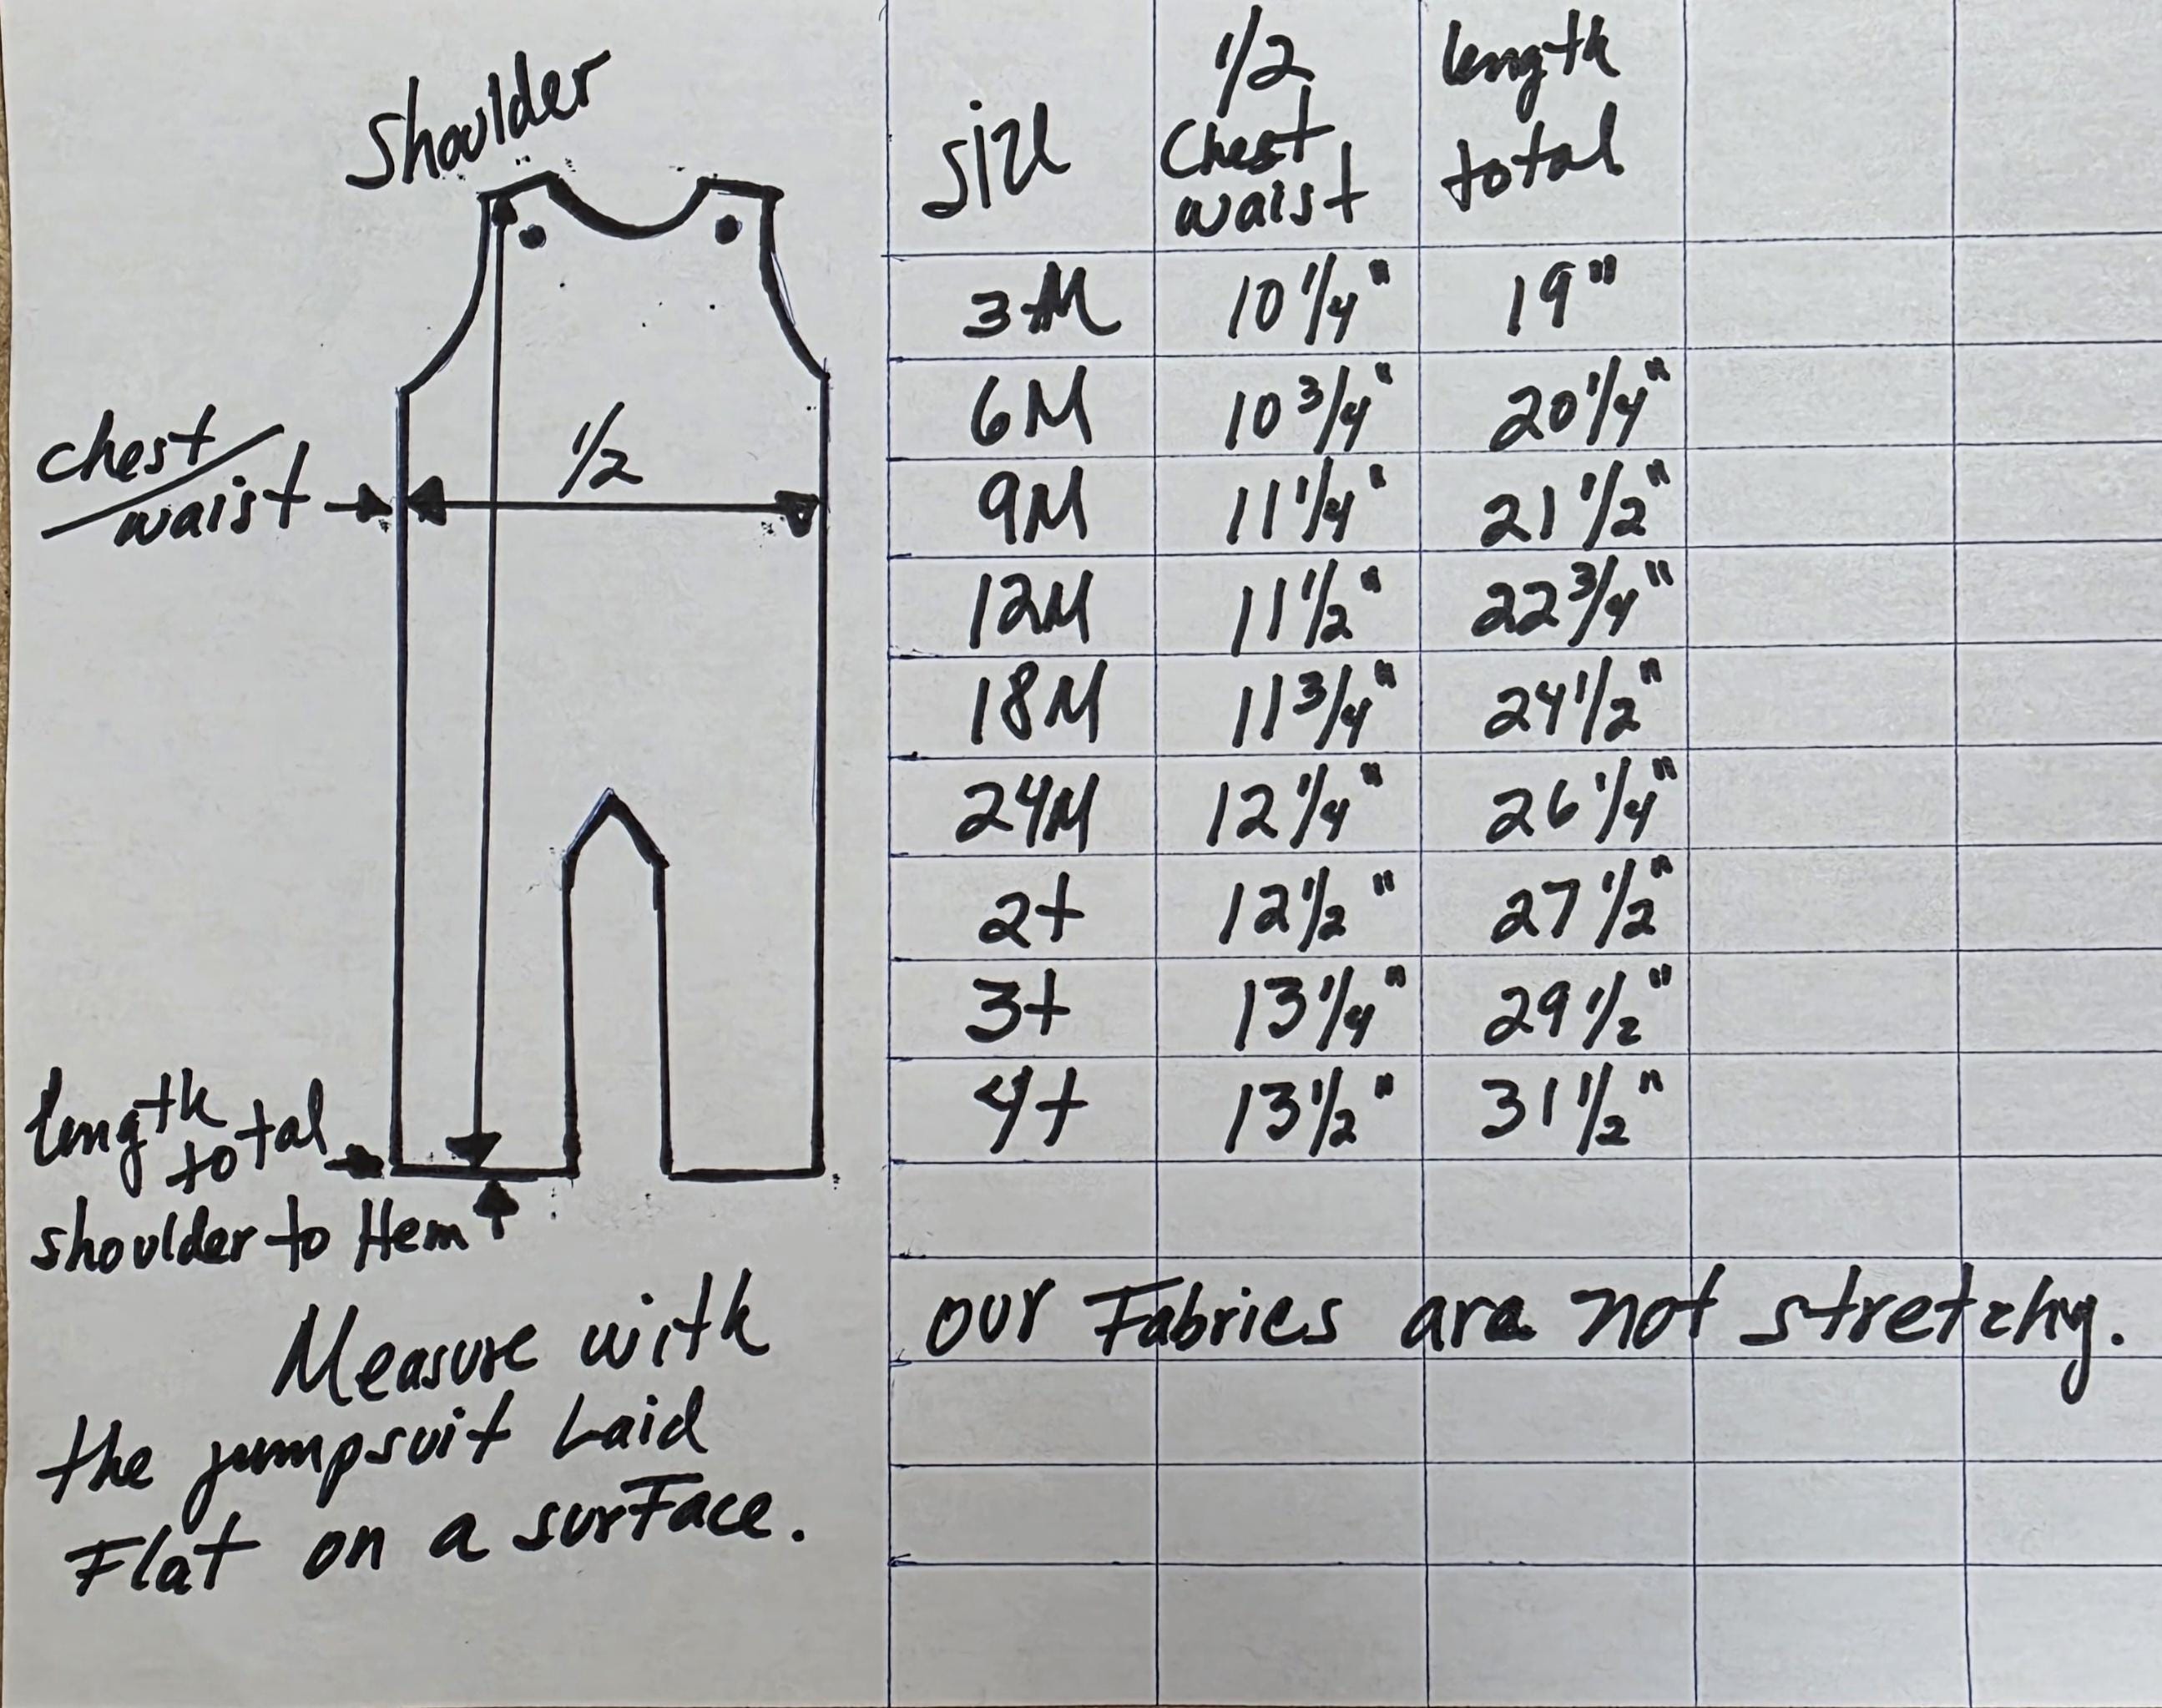 Shoulder
chest/
waist
1/2
length
total
shoulder to Hem
Measure with
the jumpsuit Laid
Flat on a surface.
size 1/2 Chest waist length total
3M 10 1/4" 19"
6M 10 3/4" 20 1/4"
9M 11 1/4" 21 1/2"
12M 11 1/2" 22 3/4"
18M 11 3/4" 24 1/2"
24M 12 1/4" 26 1/4"
2t 12 1/2" 27 1/2"
3t 13 1/4" 29 1/2"
4t 13 1/2" 31 1/2"
our Fabrics are not stretchy.